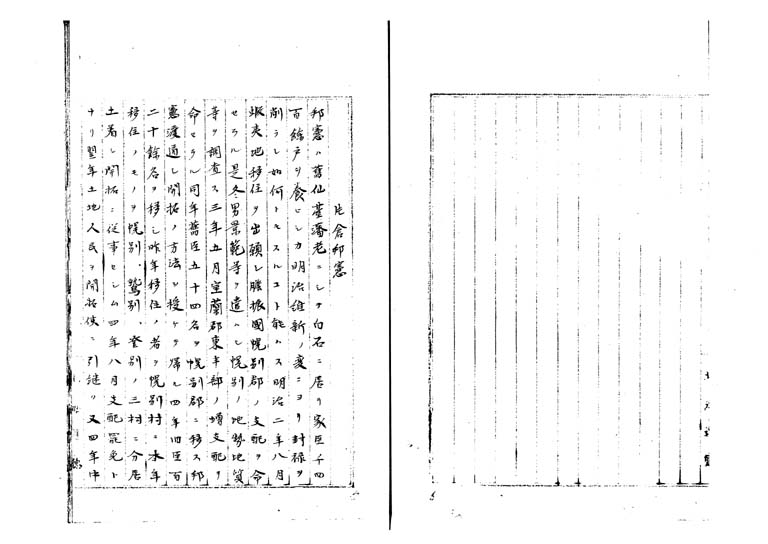 片倉邦憲
邦憲ハ舊仙臺藩老ニシテ白石ニ居リ家臣千四
百餘戸ヲ食ヒシカ明治維新ノ変ニヨリ封禄ヲ
削ラレ如何トモスルコト能ハス明治二年八月
蝦夷地移住ヲ出願シ膽振國幌別郡ノ支配ヲ命
セラル是冬男景範等ヲ遣ハシ幌別ノ地勢地質
等ヲ調査ス三年五月室蘭郡東半部ノ増支配ヲ
命セラル同年舊臣五十四名ヲ幌別郡ニ移ス邦
憲渡道シ開拓ノ方法ヲ授ケテ帰ル四年旧臣百
二十餘名ヲ移シ昨年移住ノ者ヲ幌別村ニ本年
移住ノモノヲ幌別、鷲別、登別ノ三村ニ分居
土着シ開拓ニ従事セシム四年八月支配罷免ト
ナリ翌年土地人民ヲ開拓使ニ引継ク又四年中